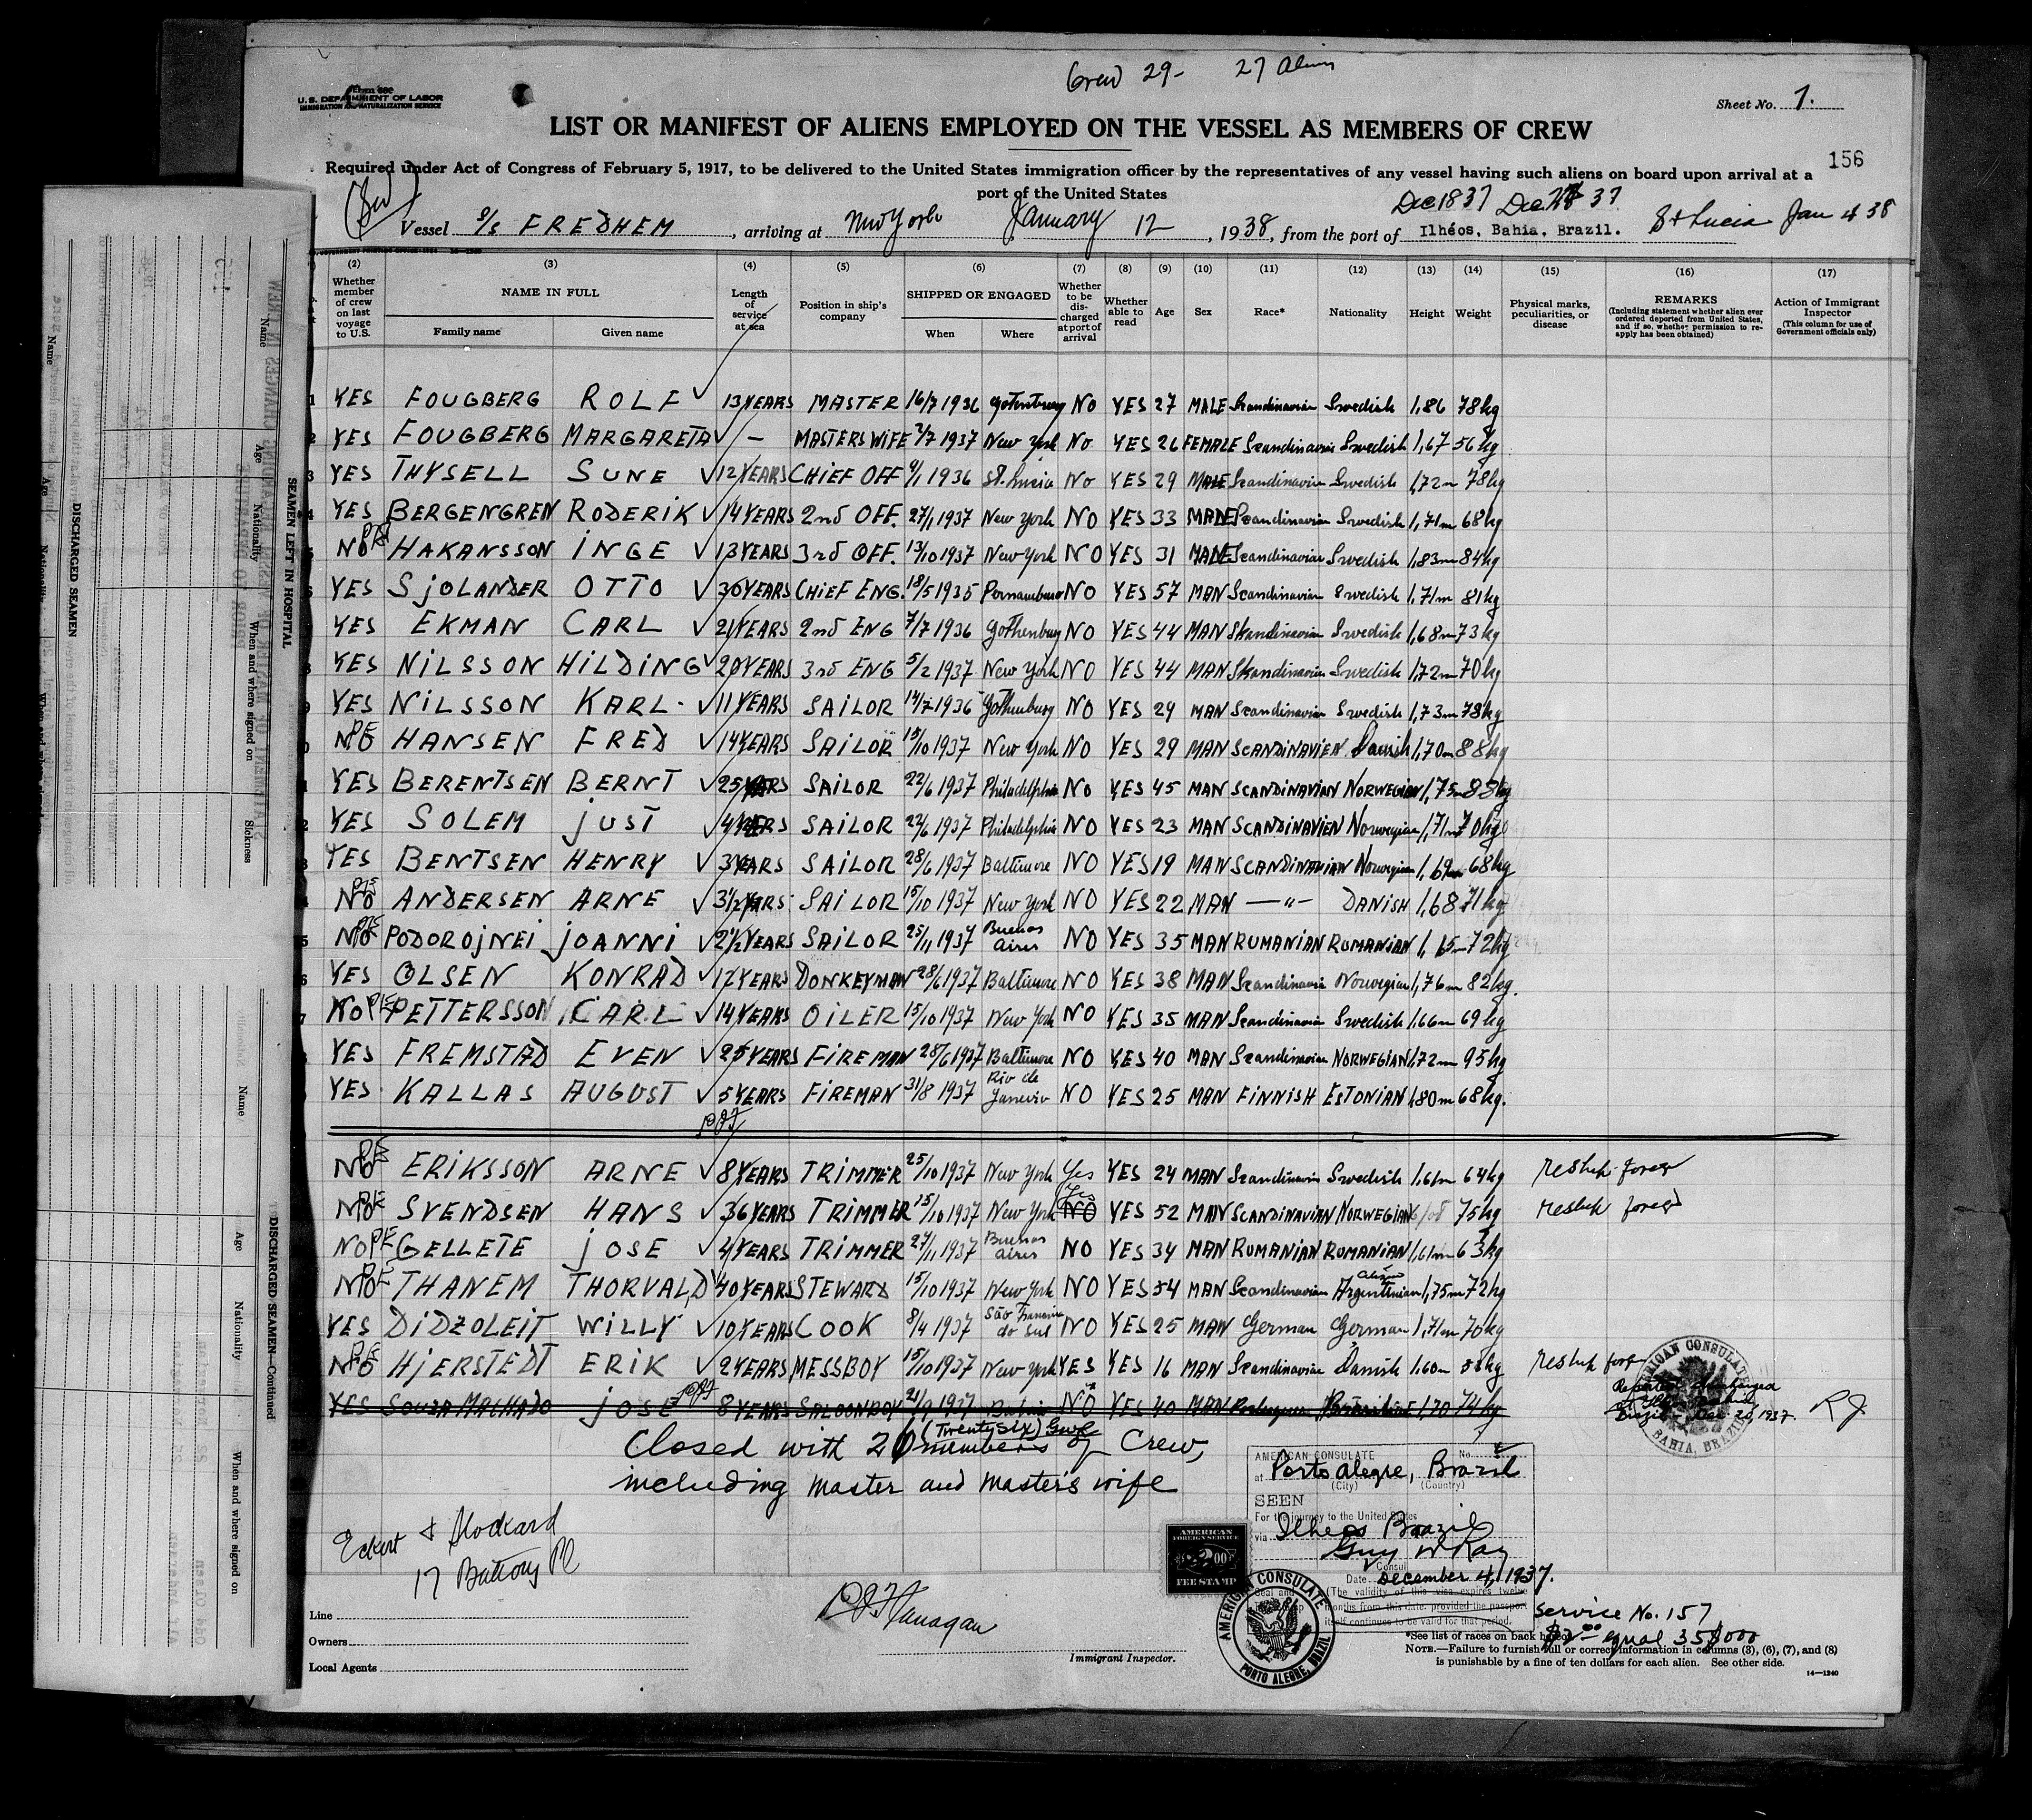 Crew 29- 27 Aliens
Form 680
U.S. DEPARTMENT OF LABOR
IMMIGRATION AND NATURALIZATION SERVICE
Sheet No. 1.
LIST OR MANIFEST OF ALIENS EMPLOYED ON THE VESSEL AS MEMBERS OF CREW
156
Required under Act of Congress of February 5, 1917, to be delivered to the United States immigration officer by the representatives of any vessel having such aliens on board upon arrival at a
port of the United States
Dec 18 37 Dec 37
Vessel S/S FREDHEM, arriving at New York January 12, 1938, from the port of Ilhéos, Bahia, Brazil. St Lucia Jan 4 38
(2) (3) (4) (5) (6) (7) (8) (9) (10) (11) (12) (13) (14) (15) (16) (17)
Whether member of crew on last voyage to U.S. NAME IN FULL Family name Given name Length of service at sea Position in ship's company SHIPPED OR ENGAGED When Where Whether to be discharged at port of arrival Whether able to read Age Sex Race* Nationality Height Weight Physical marks, peculiarities, or disease REMARKS (Including statement whether alien ever ordered deported from United States, and if so, whether permission to reapply has been obtained) Action of Immigrant Inspector (This column for use of Government officials only)
1 YES FOUGBERG ROLF 13 YEARS MASTER 16/7 1936 Gotenburg NO YES 27 MALE Scandinavian Swedish 1,86 78kg
2 YES FOUGBERG MARGARETA - MASTERS WIFE 7/7 1937 New York No YES 26 FEMALE Scandinavia Swedish 1,67 56kg
3 YES THYSELL SUNE 12 YEARS CHIEF OFF 9/1 1936 St. Lucia No YES 29 MALE Scandinavian Swedish 1,72m 78kg
4 YES BERGENGREN RODERIK 14 YEARS 2nd OFF. 27/1 1937 New York NO YES 33 MALE Scandinavian Swedish 1,71m 68kg
5 NO HAKANSSON INGE 13 YEARS 3rd OFF. 13/10 1937 New York NO YES 31 MALE Scandinavian Swedish 1,83m 84kg
6 YES SJOLANDER OTTO 30 YEARS CHIEF ENG. 18/5 1935 Pernambuco NO YES 57 MAN Scandinavian Swedish 1,71m 81kg
YES EKMAN CARL 21 YEARS 2nd ENG 7/7 1936 Gothenburg NO YES 44 MAN Skandinavian Swedish 1,68m 73kg
8 YES NILSSON HILDING 20 YEARS 3rd ENG 5/2 1937 New York NO YES 44 MAN Skandinavian Swedish 1,72m 70kg
9 YES NILSSON KARL 11 YEARS SAILOR 14/7 1936 Gothenburg NO YES 29 MAN Scandinavian Swedish 1,73m 78kg
0 NO HANSEN FRED 14 YEARS SAILOR 15/10 1937 New York NO YES 29 MAN SCANDINAVIEN Danish 1,70m 88kg
1 YES BERENTSEN BERNT 25 YEARS SAILOR 22/6 1937 Philadelphia NO YES 45 MAN SCANDINAVIAN NORWEGIAN 1,75m 85kg
2 YES SOLEM JUST 4 YEARS SAILOR 22/6 1937 Philadelphia NO YES 23 MAN SCANDINAVIEN Norwegian 1,71m 70kg
3 YES BENTSEN HENRY 3 YEARS SAILOR 28/6 1937 Baltimore NO YES 19 MAN SCANDINAVIAN Norwegian 1,69m 68kg
4 NO ANDERSEN ARNE 3½ YEARS SAILOR 15/10 1937 New York NO YES 22 MAN —"— DANISH 1,68 71kg
5 NO PODOROJNEI JOANNI 2½ YEARS SAILOR 25/11 1937 Buenos Aires NO YES 35 MAN RUMANIAN RUMANIAN 1,65m 72kg
6 YES OLSEN KONRAD 17 YEARS DONKEYMAN 28/6 1937 Baltimore NO YES 38 MAN Scandinavia Norwegian 1,76m 82kg.
7 NO PETTERSSON CARL 14 YEARS OILER 15/10 1937 New York NO YES 35 MAN Scandinavian Swedish 1,66m 69kg
YES FREMSTAD EVEN 25 YEARS FIREMAN 28/6 1937 Baltimore NO YES 40 MAN Scandinavian NORWEGIAN 1,72m 95kg
YES KALLAS AUGUST 5 YEARS FIREMAN 31/8 1937 Rio de Janeiro NO YES 25 MAN FINNISH ESTONIAN 1,80m 68kg.
NO ERIKSSON ARNE 8 YEARS TRIMMER 25/10 1937 New York Yes YES 24 MAN Scandinavia Swedish 1,61m 64kg reship foreg
NO SVENDSEN HANS 36 YEARS TRIMMER 15/10 1937 New York Yes NO YES 52 MAN SCANDINAVIAN NORWEGIAN 75kg reship foreg
NO GELLETE JOSE 4 YEARS TRIMMER 27/11 1937 Buenos Aires NO YES 34 MAN RUMANIAN RUMANIAN 1,61m 63kg
NO THANEM THORVALD 40 YEARS STEWARD 15/10 1937 New York NO YES 54 MAN Scandinavian Argentinian 1,75m 72kg
YES DIDZOLEIT WILLY 10 YEARS COOK 8/4 1937 São Francisco do Sul NO YES 25 MAN German German 1,71m 70kg
NO HJERSTEDT ERIK 2 YEARS MESSBOY 15/10 1937 New York YES YES 16 MAN Scandinavian Danish 1,60m 58kg reship foreg
YES SOUZA MACHADO JOSE 8 YEARS SALOONBOY 21/9 1937 Bahia NO YES 40 MAN Portuguese Brasilian 1,70 74kg
Brazil - Dec. 20, 1937. RJ.
AMERICAN CONSULATE BAHIA, BRAZIL
(Twenty six) GWR
Closed with 26 members of Crew,
including Master and Master's wife
AMERICAN CONSULATE No.
at Porto Alegre, Brazil
(City) (Country)
SEEN
For the journey to the United States
via Ilheos Brazil
Guy W Ray
Consul
Date December 4, 1937.
(The validity of this visa expires twelve
months from this date, provided the passport
itself continues to be valid for that period.
Service No. 157
$2.00 equal 35$000
AMERICAN FOREIGN SERVICE
2.00
FEE STAMP
AMERICAN CONSULATE PORTO ALEGRE, BRAZIL
Eckert & Stockard
17 Battery Pl
Line
Owners
Local Agents
Flanagan
Immigrant Inspector.
*See list of races on back hereof.
NOTE.—Failure to furnish full or correct information in columns (3), (6), (7), and (8)
is punishable by a fine of ten dollars for each alien. See other side.
14—1240
SEAMEN LEFT IN HOSPITAL
Name Age Nationality When and where signed on Sickness
DISCHARGED SEAMEN
Name Age Nationality When and where signed on
DISCHARGED SEAMEN—Continued
Name Age Nationality When and where signed on